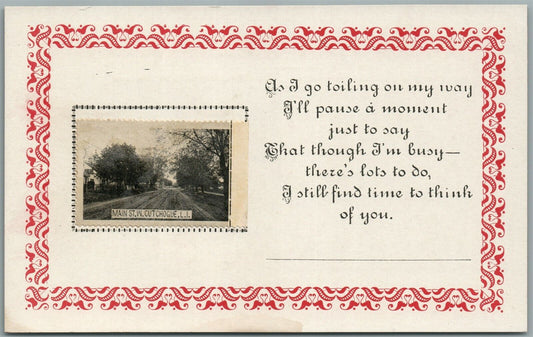 MAIN ST. W. CUTCHOGUE, L. I.
As I go toiling on my way
I'll pause a moment
just to say
That though I'm busy—
there's lots to do,
I still find time to think
of you.